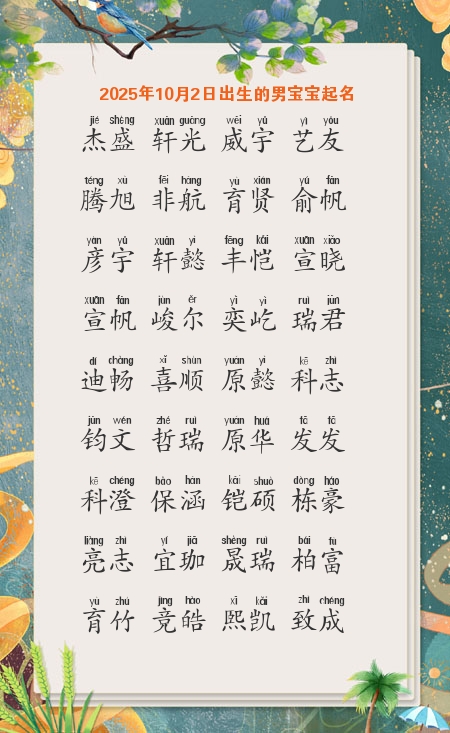 2025年10月2日出生的男宝宝起名
jié shèng xuān guāng wēi yǔ yì yǒu
杰盛 轩光 威宇 艺友
téng xù fēi háng yù xián yú fān
腾旭 非航 育贤 俞帆
yàn yǔ xuān yì fēng kǎi xuān xiǎo
彦宇 轩懿 丰恺 宣晓
xuān fān jùn ěr yì yì ruì jūn
宣帆 峻尔 奕屹 瑞君
dí chàng xǐ shùn yuán yì kē zhì
迪畅 喜顺 原懿 科志
jūn wén zhé ruì yuán huá fā fā
钧文 哲瑞 原华 发发
kē chéng bǎo hán kǎi shuò dòng háo
科澄 保涵 铠硕 栋豪
liàng zhì yí jiā shèng ruì bǎi fù
亮志 宜珈 晟瑞 柏富
yù zhú jìng hào xī kǎi zhì chéng
育竹 竞皓 熙凯 致成